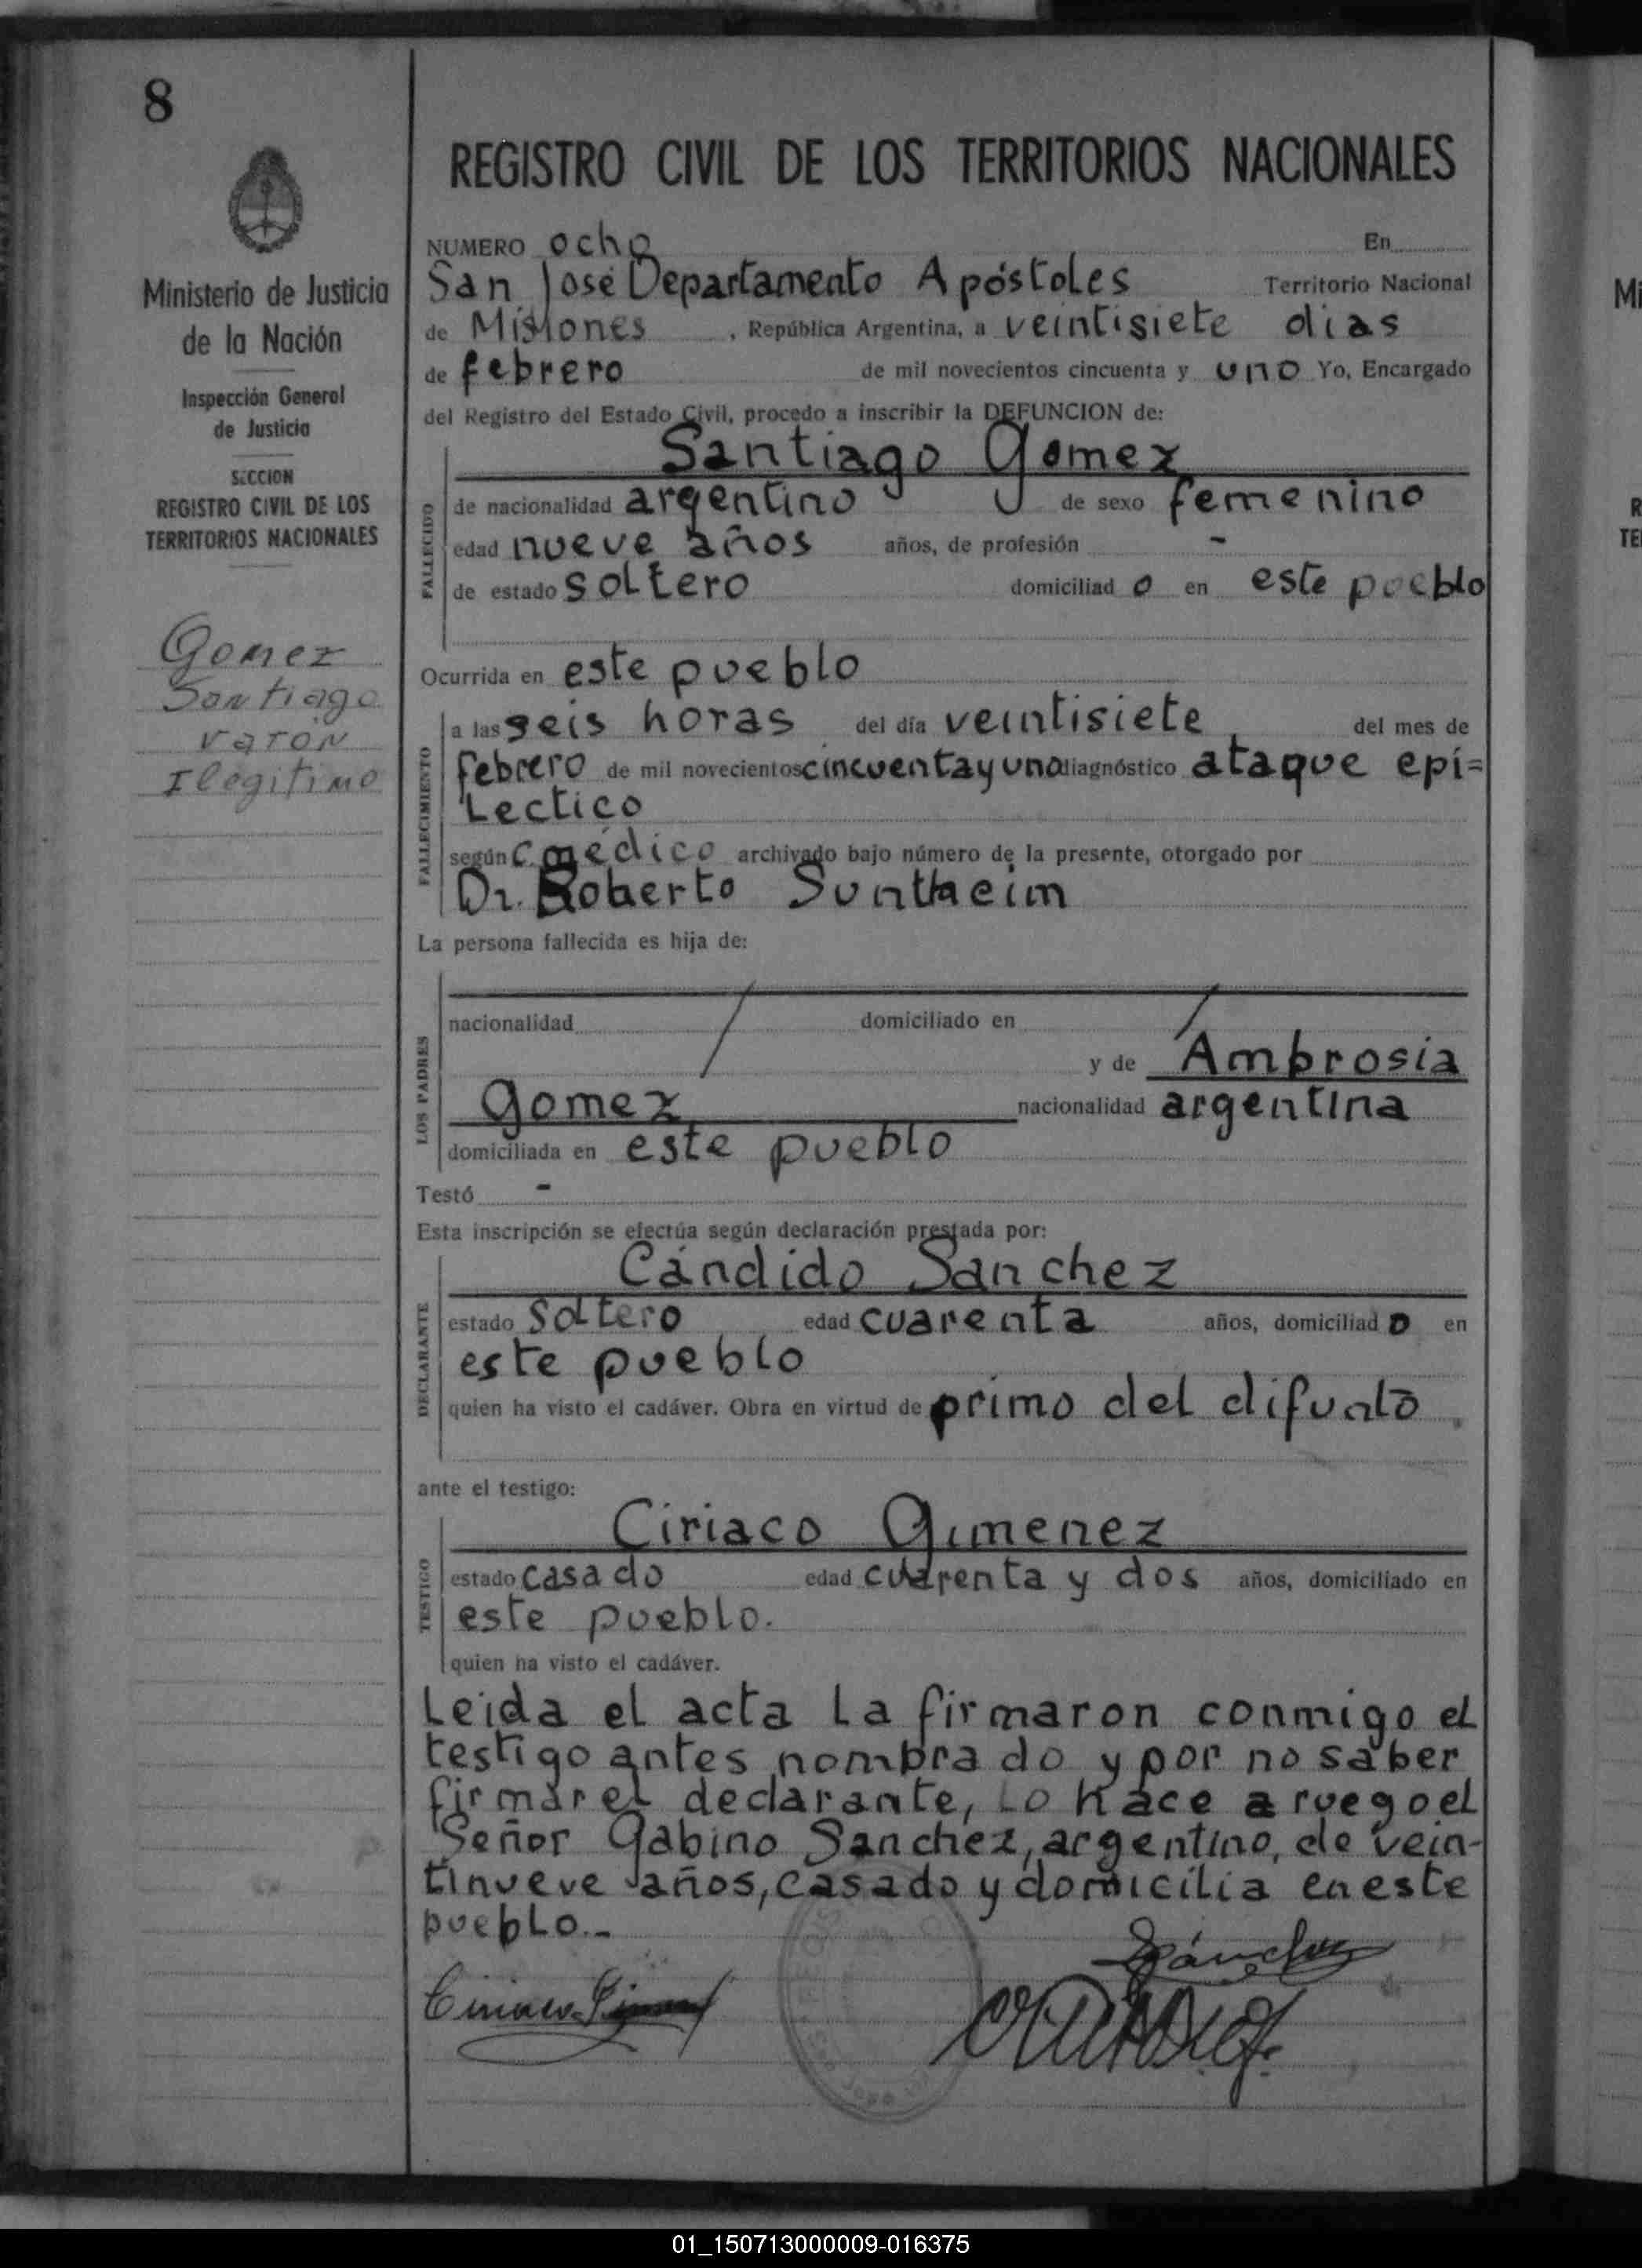 8
REGISTRO CIVIL DE LOS TERRITORIOS NACIONALES
Ministerio de Justicia
de la Nación
Inspección General
de Justicia
SECCION
REGISTRO CIVIL DE LOS
TERRITORIOS NACIONALES
Gomez
Santiago
varón
Ilegitimo
NUMERO ocho En
San José Departamento Apóstoles Territorio Nacional
de Misiones , República Argentina, a veintisiete dias
de febrero de mil novecientos cincuenta y uno Yo, Encargado
del Registro del Estado Civil, procedo a inscribir la DEFUNCION de:
Santiago Gomez
FALLECIDO
de nacionalidad argentino de sexo femenino
edad nueve años años, de profesión -
de estado soltero domiciliad o en este pueblo
Ocurrida en este pueblo
FALLECIMIENTO
a las seis horas del día veintisiete del mes de
febrero de mil novecientos cincuenta y uno diagnóstico ataque epi=
Lectico
según C. médico archivado bajo número de la presente, otorgado por
Dr. Roberto Suntheim
La persona fallecida es hija de:
LOS PADRES
nacionalidad domiciliado en
y de Ambrosia
Gomez nacionalidad argentina
domiciliada en este pueblo
Testó -
Esta inscripción se efectúa según declaración prestada por:
Cándido Sanchez
DECLARANTE
estado Soltero edad cuarenta años, domiciliad o en
este pueblo
quien ha visto el cadáver. Obra en virtud de primo del difunto
ante el testigo:
Ciriaco Gimenez
TESTIGO
estado casado edad cuarenta y dos años, domiciliado en
este pueblo.
quien ha visto el cadáver.
Leida el acta la firmaron conmigo el
testigo antes nombrado y por no saber
firmar el declarante, lo hace a ruego el
Señor Gabino Sanchez, argentino, de vein-
tinueve años, casado y domicilia en este
pueblo.-
Sánchez
Ciriaco
01_150713000009-016375